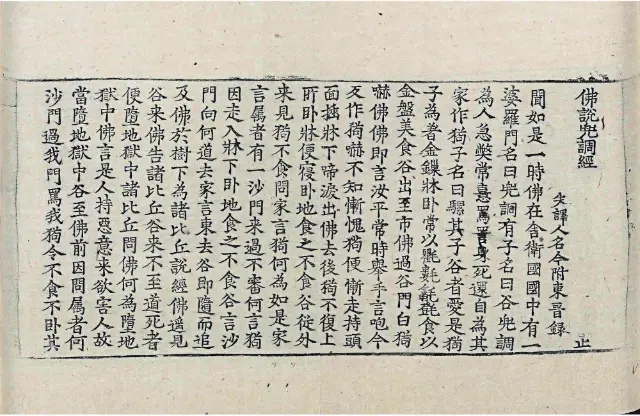 佛說兜調經
失譯人名今附東晉錄
止
聞如是一時佛在舍衛國國中有一
婆羅門名曰兜調有子名曰谷兜調
為人急弊常憙罵詈身死還自為其
家作猗子名曰騾其子谷者愛是猗
子為著金鏁牀卧常以氍氀毾㲪食以
金盤美食谷出至市佛過谷門白猗
嚇佛佛即言汝平常時舉手言咆今
反作猗嚇不知慚愧猗便慚走持頭
面牀下啼淚出佛去後猗不復上
所卧牀便寢卧地食之不食谷從外
来見猗不食問家言猗何為如是家
言屬者有一沙門来過不審何言猗
因走入牀下卧地食之不食谷言沙
門向何道去家言東去谷即隨而追
及佛於樹下為諸比丘說經佛遥見
谷来佛告諸比丘谷来不至道死者
便墮地獄中諸比丘問佛何為墮地
獄中佛言是人持惡意来欲害人故
當墮地獄中谷至佛前因問屬者何
沙門過我門罵我猗令不食不卧其